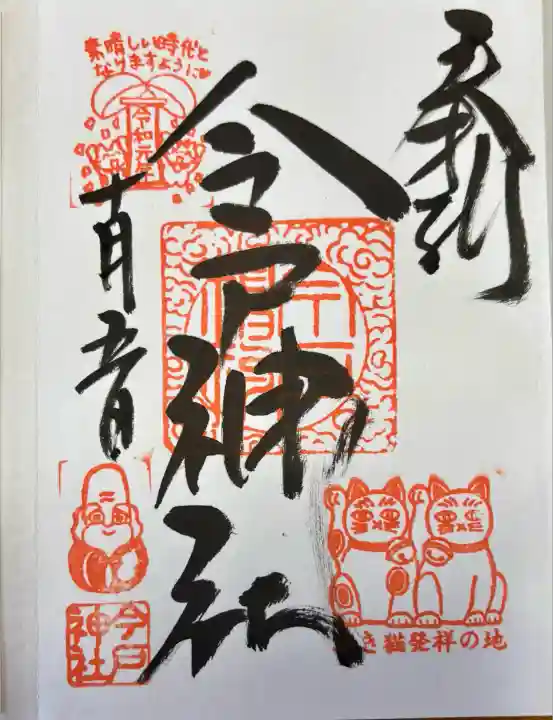 奉拝
今戸神社
素晴しい時代と
なりますように
令和元年
十月
今戸
神社
き猫発祥の地